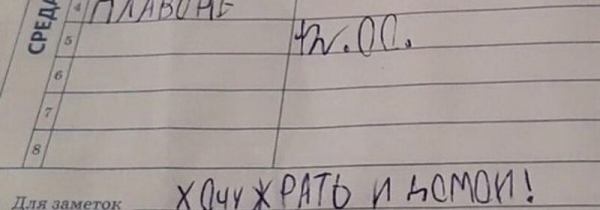 СРЕДА
4 ПЛАВОНЕ
5
6
7
8
Для заметок ХОЧУ ЖРАТЬ И ДОМОЙ!